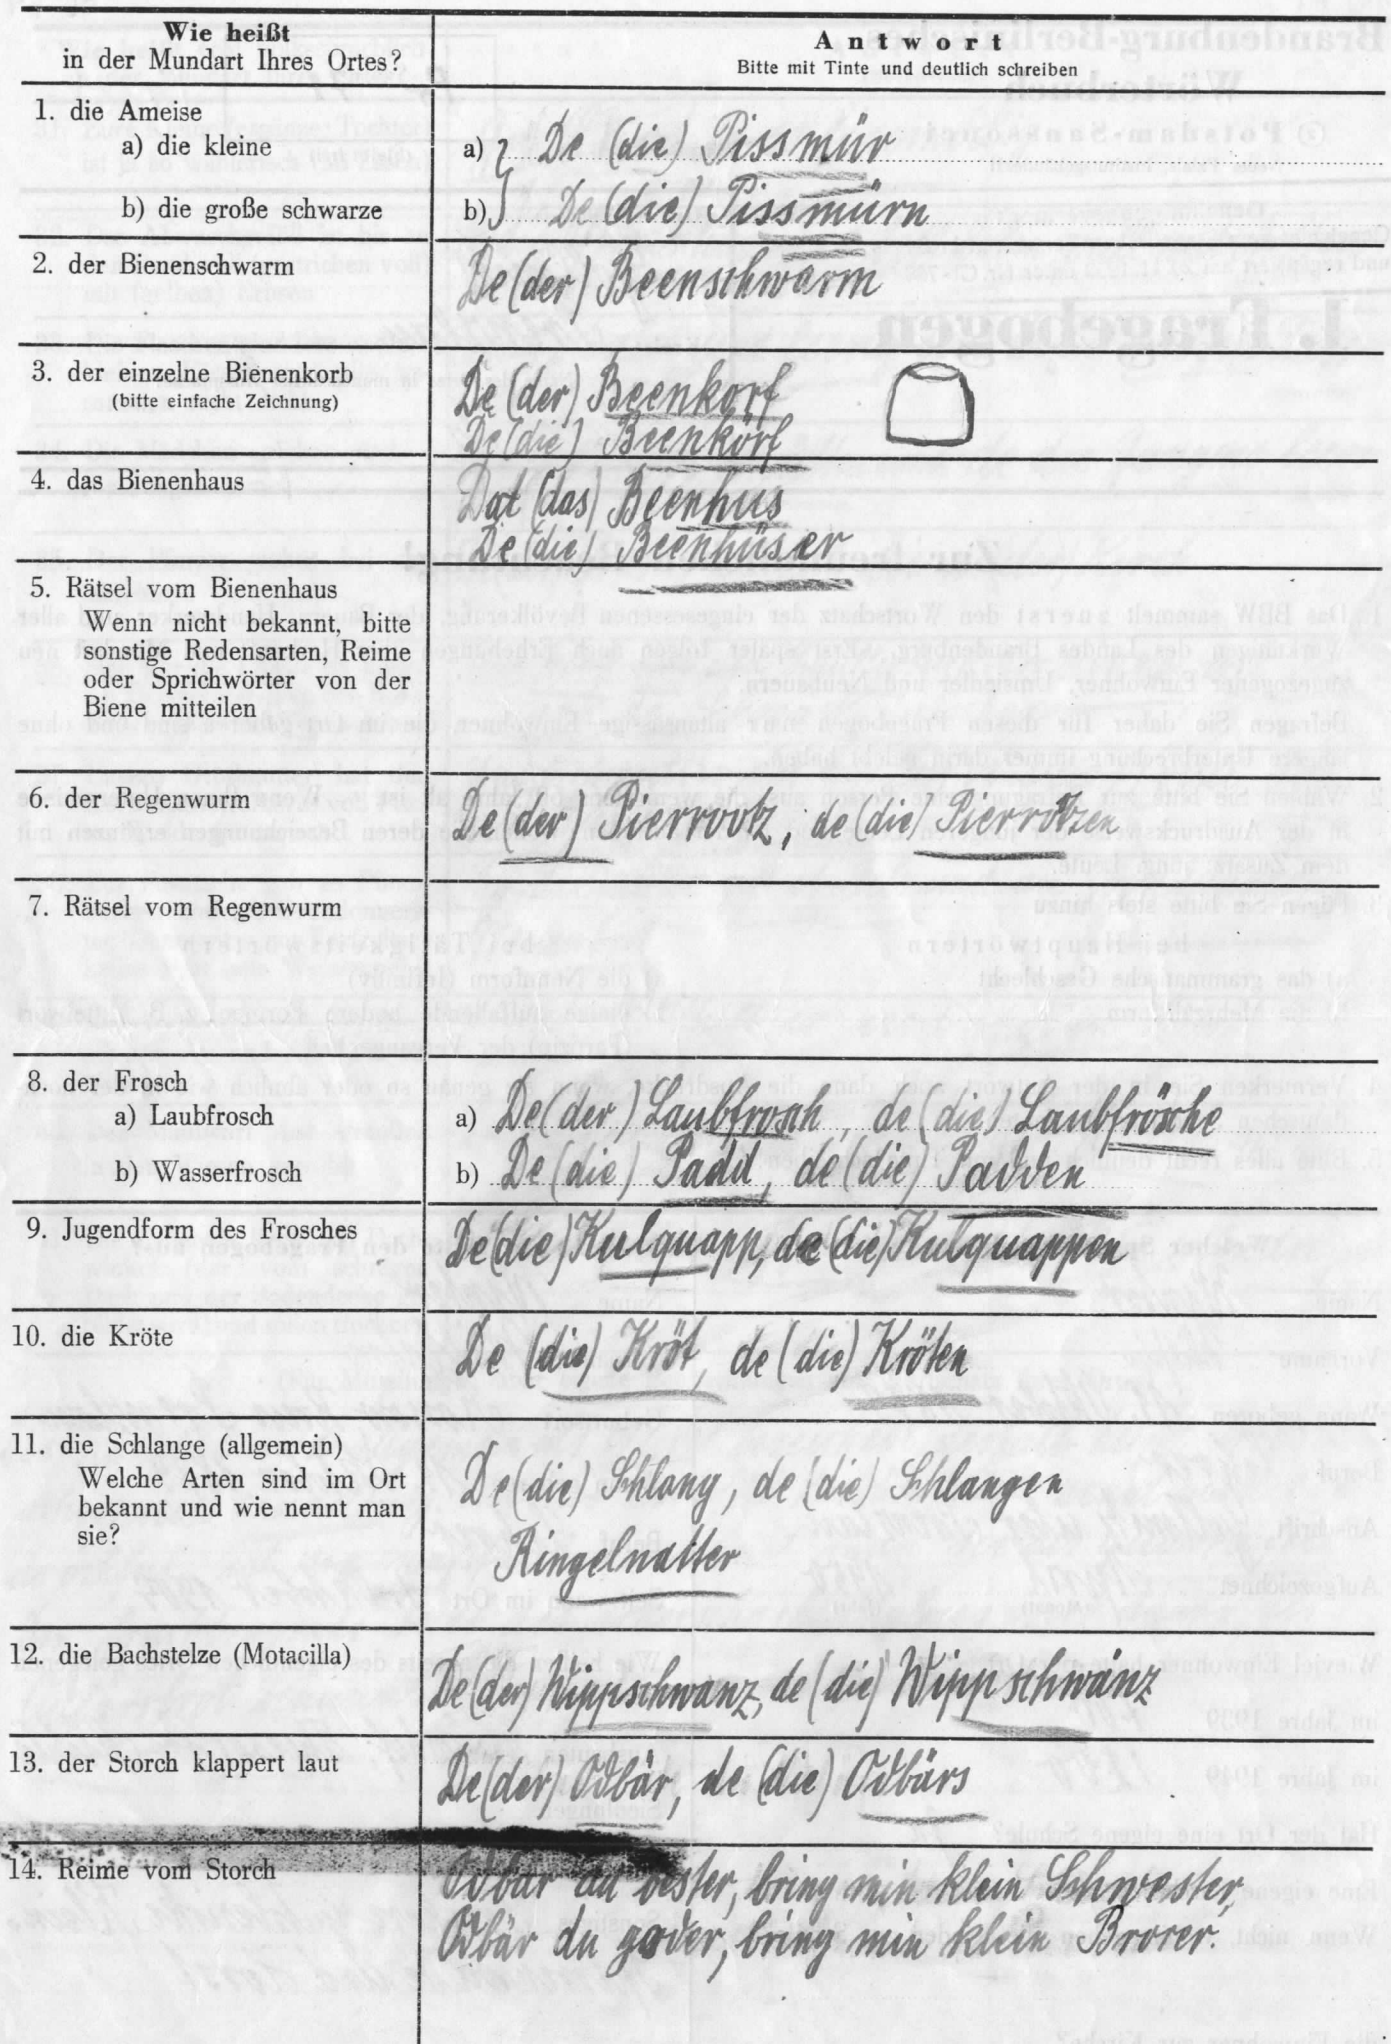 Wie heißt
in der Mundart Ihres Ortes?
Antwort
Bitte mit Tinte und deutlich schreiben
1. die Ameise
a) die kleine
a) De (die) Pissmür
b) die große schwarze
b) De (die) Pissmürn
2. der Bienenschwarm
De (der) Beenschwarm
3. der einzelne Bienenkorb
(bitte einfache Zeichnung)
De (der) Beenkorf
De (die) Beenkörf
4. das Bienenhaus
Dat (das) Beenhus
De (die) Beenhüser
5. Rätsel vom Bienenhaus
Wenn nicht bekannt, bitte
sonstige Redensarten, Reime
oder Sprichwörter von der
Biene mitteilen
6. der Regenwurm
De (der) Pierrootz, de (die) Pierrötzen
7. Rätsel vom Regenwurm
8. der Frosch
a) Laubfrosch
a) De (der) Laubfrosch, de (die) Laubfrösche
b) Wasserfrosch
b) De (die) Padd, de (die) Padden
9. Jugendform des Frosches
De (die) Kulquapp, de (die) Kulquappen
10. die Kröte
De (die) Kröt, de (die) Kröten
11. die Schlange (allgemein)
Welche Arten sind im Ort
bekannt und wie nennt man
sie?
De (die) Schlang, de (die) Schlangen
Ringelnatter
12. die Bachstelze (Motacilla)
De (der) Wippschwanz, de (die) Wippschwänz
13. der Storch klappert laut
De (der) Odbär, de (die) Odbärs
14. Reime vom Storch
Odbär du oester, bring min klein Schwester,
Odbär du goder, bring min klein Brorer.